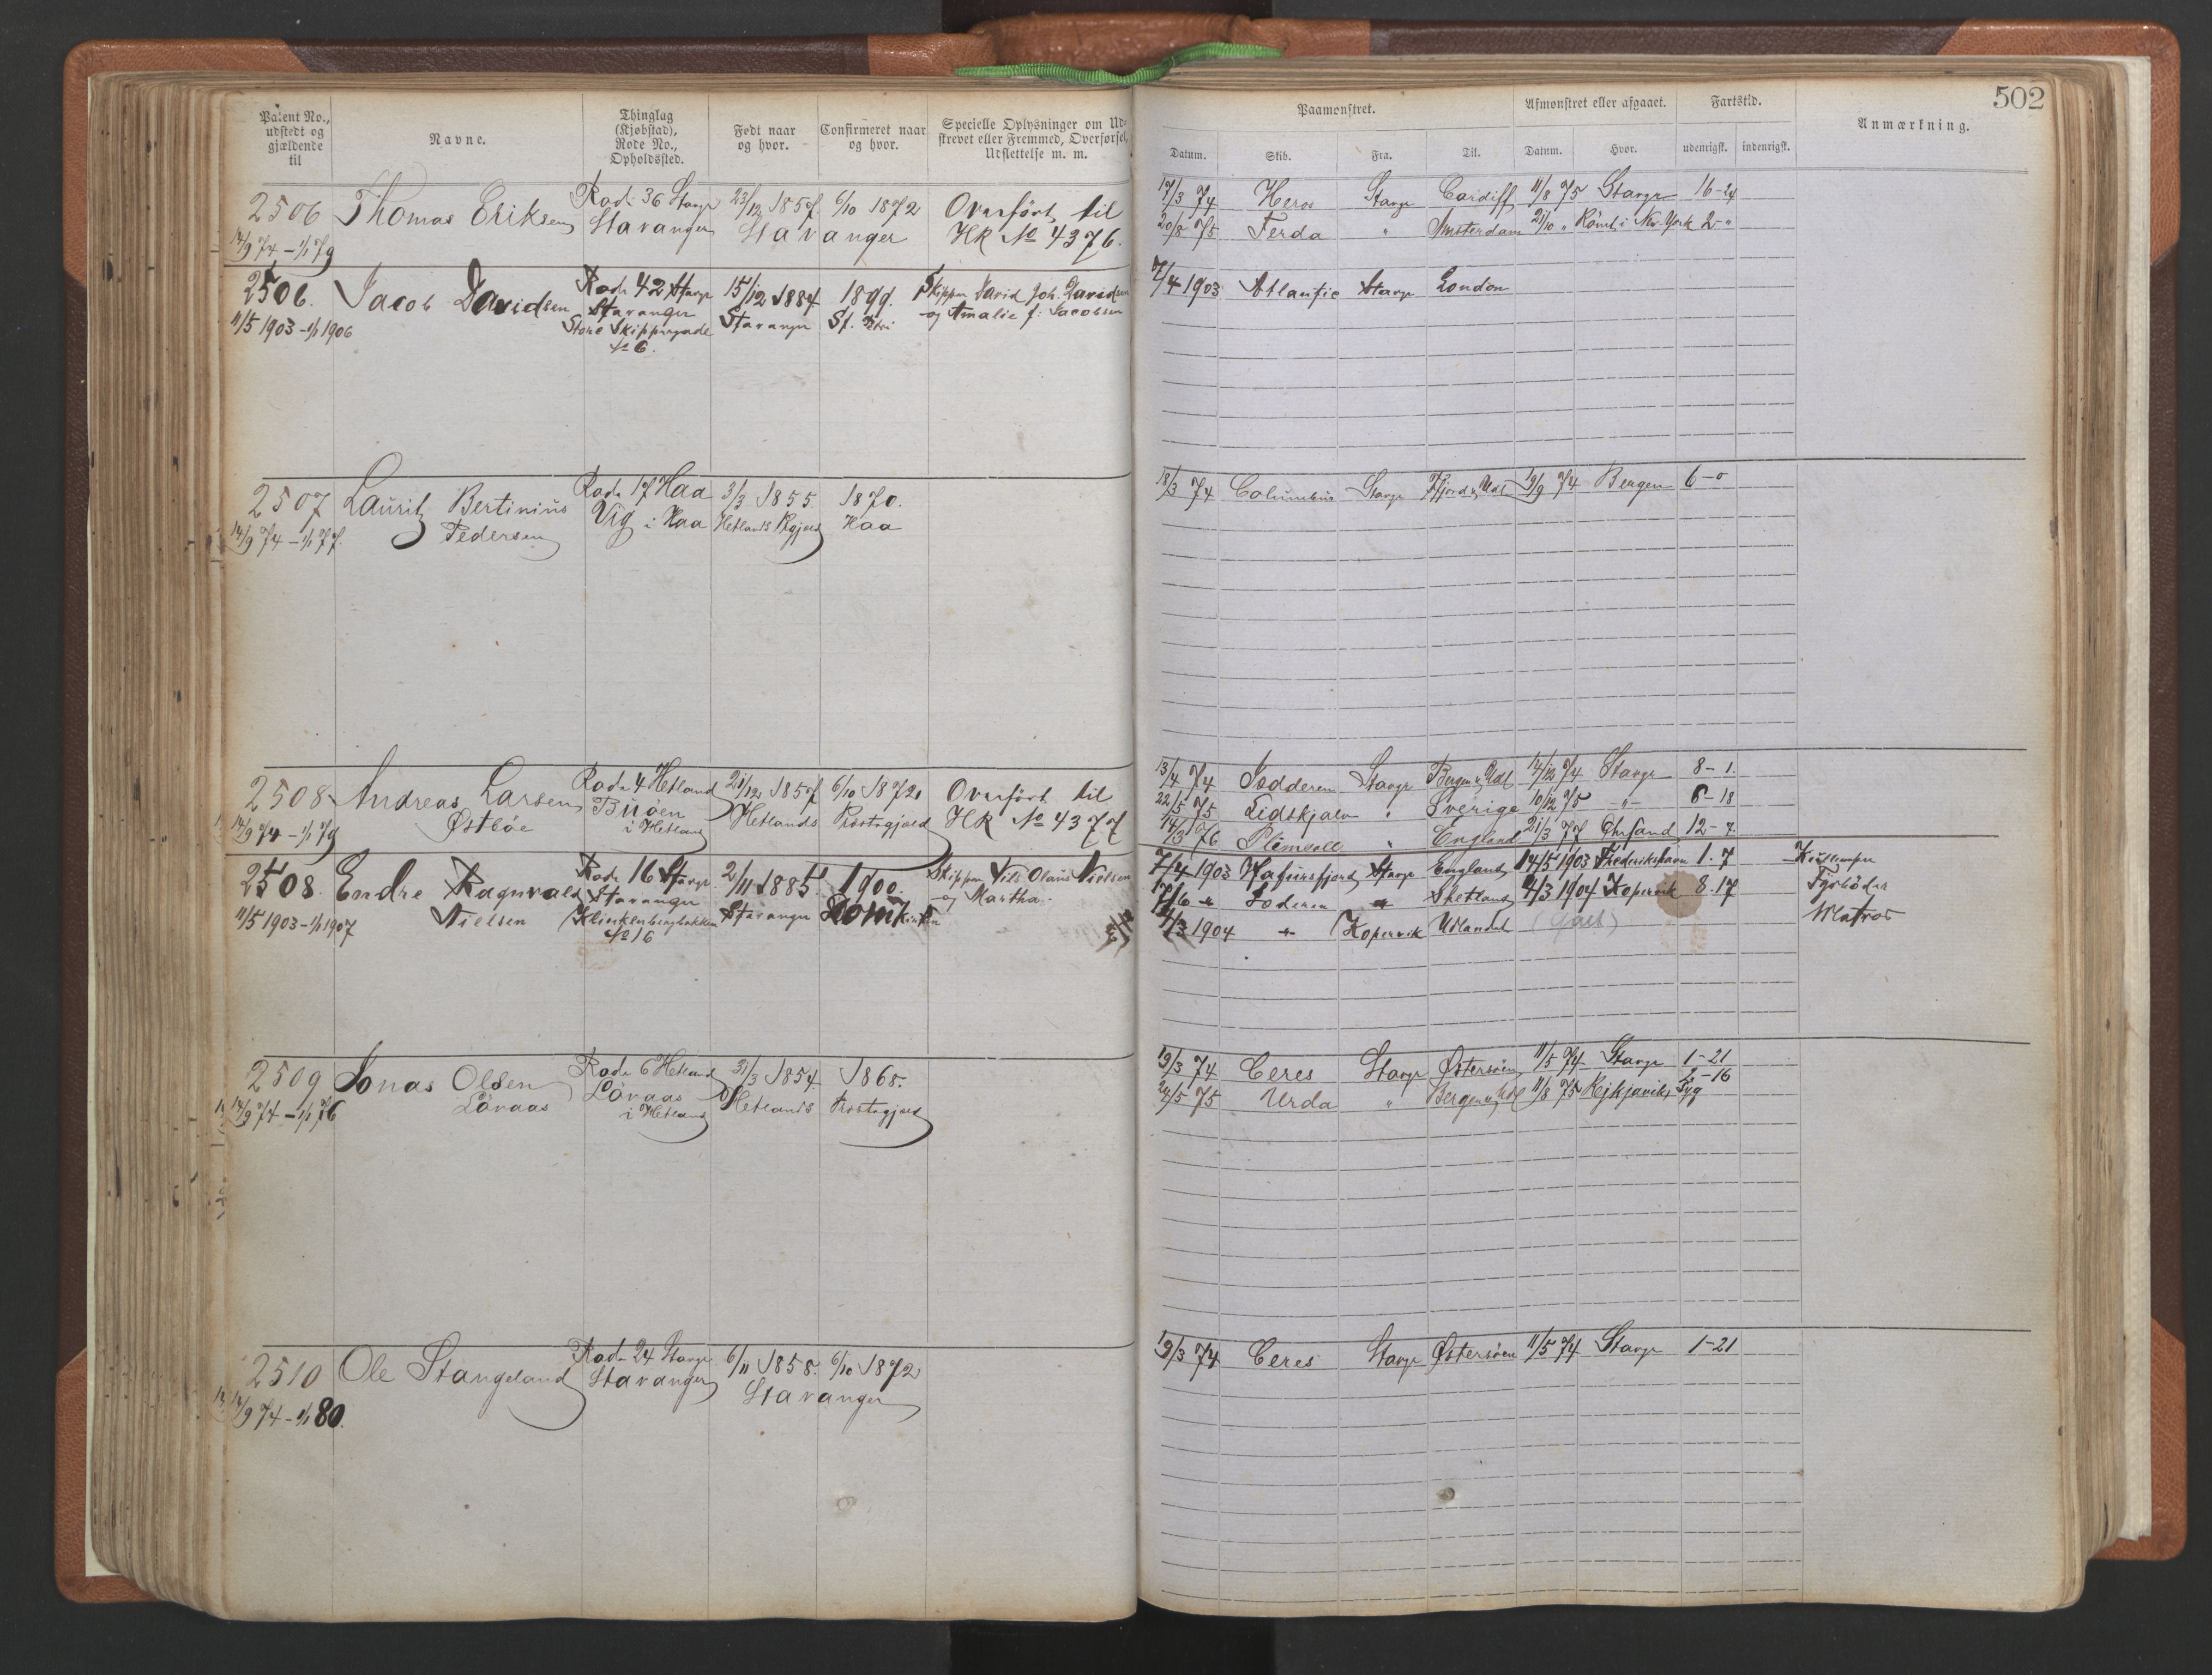 502
Patent No., udstedt og gjældende til
Navne.
Thinglag (Kjøbstad), Rode No., Opholdssted.
Født naar og hvor.
Confirmeret naar og hvor.
Specielle Oplysninger om Udskrevet eller Fremmed, Overførsel, Udslettelse m. m.
Paamønstret.
Afmønstret eller afgaaet.
Fartstid.
Anmærkning.
Datum. Skib. Fra. Til. Datum. Hvor. udenrigsk. indenrigsk.
2506 Thomas Eriksen Rode 36 Stavgr 23/12 1857. 6/10 1872 Overført til
14/9 74 - 1/1 79 Stavanger Stavanger HK No 4376.
17/3 74 Heros Stavgr Cardiff 11/8 75 Stavgr 16-24
20/8 75 Ferda " Amsterdam 21/10 " Römt i New-York 2-"
2506. Jacob Davidsen Rode 42 Stavgr 15/12 1884 1899. Skipper David Joh. Davidsen
11/5 1903 - 1/1 1906 Stavanger Stavanger St. Petri og Amalie f: Jacobsen
Store Skippergade
No 6.
7/4 1903 Atlantic Stavgr London
2507 Lauritz Bertinius Rode 17 Haa 3/3 1855. 1870.
14/9 74 - 1/1 77. Pedersen Vig i Haa Hetlands Prgjæld Haa
18/3 74 Columbus Stavgr Fjord & Udl 19/9 74 Bergen 6-0
2508 Andreas Larsen Rode 4 Hetland 21/12 1857 6/10 1872 Overført til
14/9 74 - 1/1 79 Østbøe Buøen i Hetland Hetlands Præstegjæld HK No 4377
13/4 74 Jædderen Stavgr Bergen & Udl 14/12 74 Stavgr 8-1.
22/5 75 Lidskjalv " Sverige 10/12 75 -"- 6-18
14/3 76 " England 21/3 77 Chrsand 12-7.
2508. Endre Ragnvald Rode 16 Stavgr 2/11 1885. 1900. Skipper Nils Olaus Nielsen
11/5 1903 - 1/1 1907 Nielsen Stavanger Stavanger Domkirken og Martha
Klinkenbergbakken
No 16
7/4 1903 Hafursfjord Stavgr England 14/5 1903 Frederikshavn 1.7
17/6 " Joderen " Shetland 4/3 1904 Kopervik 8.17 Fyrböder
4/3 1904 " Kopervik Udlandet Matros
2509 Jonas Olsen Rode 6 Hetland 31/3 1854. 1868.
14/9 74 - 1/1 76 Lövaas Lövaas i Hetland Hetlands Præstegjæld
19/3 74 Ceres Stavgr Østersöen 11/5 74 Stavgr 1-21
24/5 75 Urda " Bergen & Udl 11/8 75 Rejkjavik, Syg 2-16
2510 Ole Stangeland Rode 24 Stavgr 6/11 1858. 6/10 1872
14/9 74 - 1/1 80. Stavanger Stavanger
19/3 74 Ceres Stavgr Østersöen 11/5 74 Stavgr 1-21